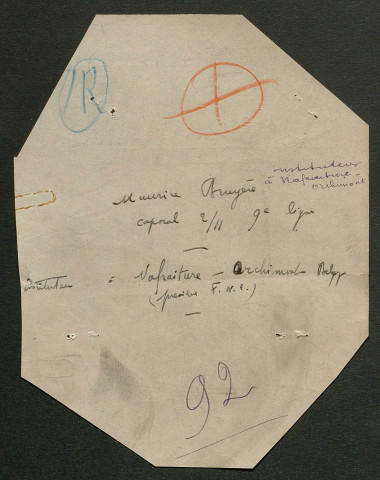 R
instituteur
à Nafraiture -
Orchimont
Maurice Bruyère
caporal 2/II 9e ligne
instituteur = Nafraiture - Orchimont Belg
( F. N. C. )
92